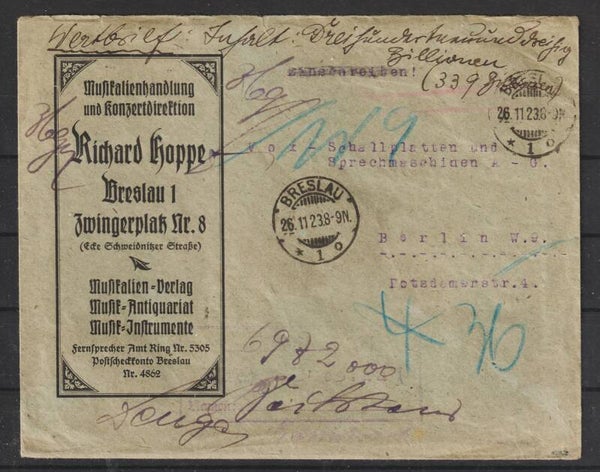 Wertbrief: Inhalt: Dreihundertneununddreißig
Billionen
(339 Billionen)
Einschreiben!
BRESLAU
26.11.23.8-9N.
* 1 o
Musikalienhandlung
und Konzertdirektion
Richard Hoppe
Breslau 1
Zwingerplatz Nr. 8
(Ecke Schweidnitzer Straße)
Musikalien-Verlag
Musik-Antiquariat
Musik-Instrumente
Fernsprecher Amt Ring Nr. 5305
Postscheckkonto Breslau
Nr. 4862
Vox-Schallplatten und
Sprechmaschinen A-G.
Berlin W.9.
Potsdamerstr.4.
BRESLAU
26.11.23.8-9N.
* 1 o
W9
36